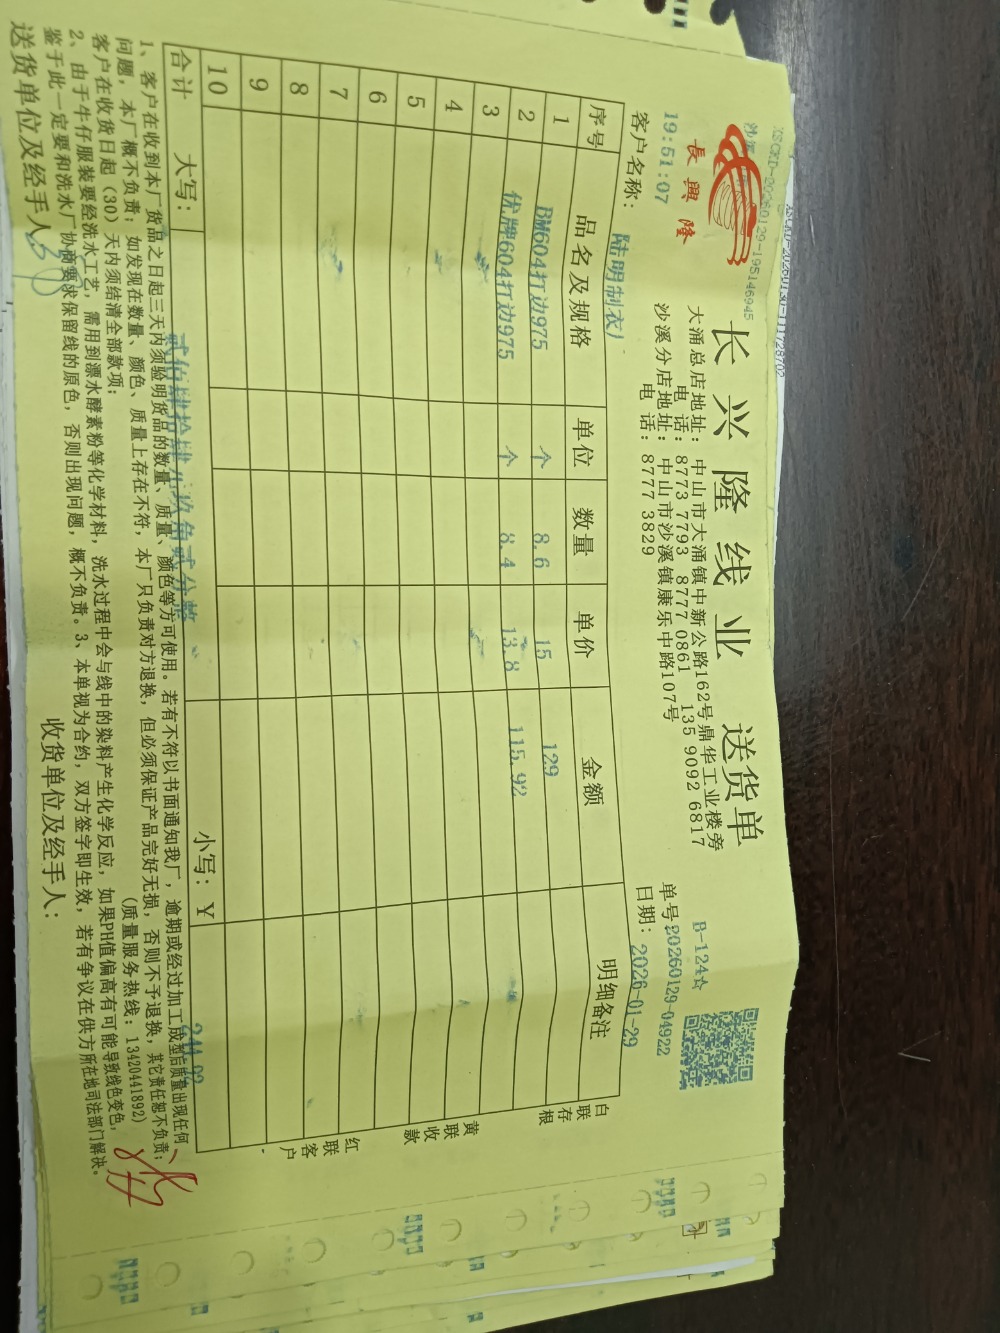 XSCKD-20260129-195146945
19:51:07
長興隆
长兴隆线业 送货单
大涌总店地址: 中山市大涌镇中新公路162号鼎华工业楼旁
电话: 8773 7793 8777 0861 135 9092 6817
沙溪分店地址: 中山市沙溪镇康乐中路107号
电话: 8777 3829
B-124☆
单号:20260129-04922
客户名称: 陆明制衣厂
日期: 2026-01-29
序号 品名及规格 单位 数量 单价 金额 明细备注
1 BM604打边975 个 8.6 15 129
2 优牌604打边975 个 8.4 13.8 115.92
3
4
5
6
7
8
9
10
合计 大写: 贰佰肆拾肆元玖角贰分整 小写: ¥ 244.92
白联存根
黄联收款
红联客户
1、客户在收到本厂货品之日起三天内须验明货品的数量、质量、颜色等方可使用。若有不符以书面通知我厂,逾期或经过加工成型后质量出现任何
问题,本厂概不负责;如发现在数量、颜色、质量上存在不符,本厂只负责对方退换,但必须保证产品完好无损,否则不予退换,其它责任恕不负责;
客户在收货日起(30)天内须结清全部款项; (质量服务热线:13420441892)
2、由于牛仔服装要经洗水工艺,需用到漂水酵素粉等化学材料,洗水过程中会与线中的染料产生化学反应,如果PH值偏高有可能导致线色变色,
鉴于此一定要和洗水厂协商要求保留线的原色,否则出现问题,概不负责。3、本单视为合约,双方签字即生效,若有争议在供方所在地司法部门解决。
送货单位及经手人: 收货单位及经手人: